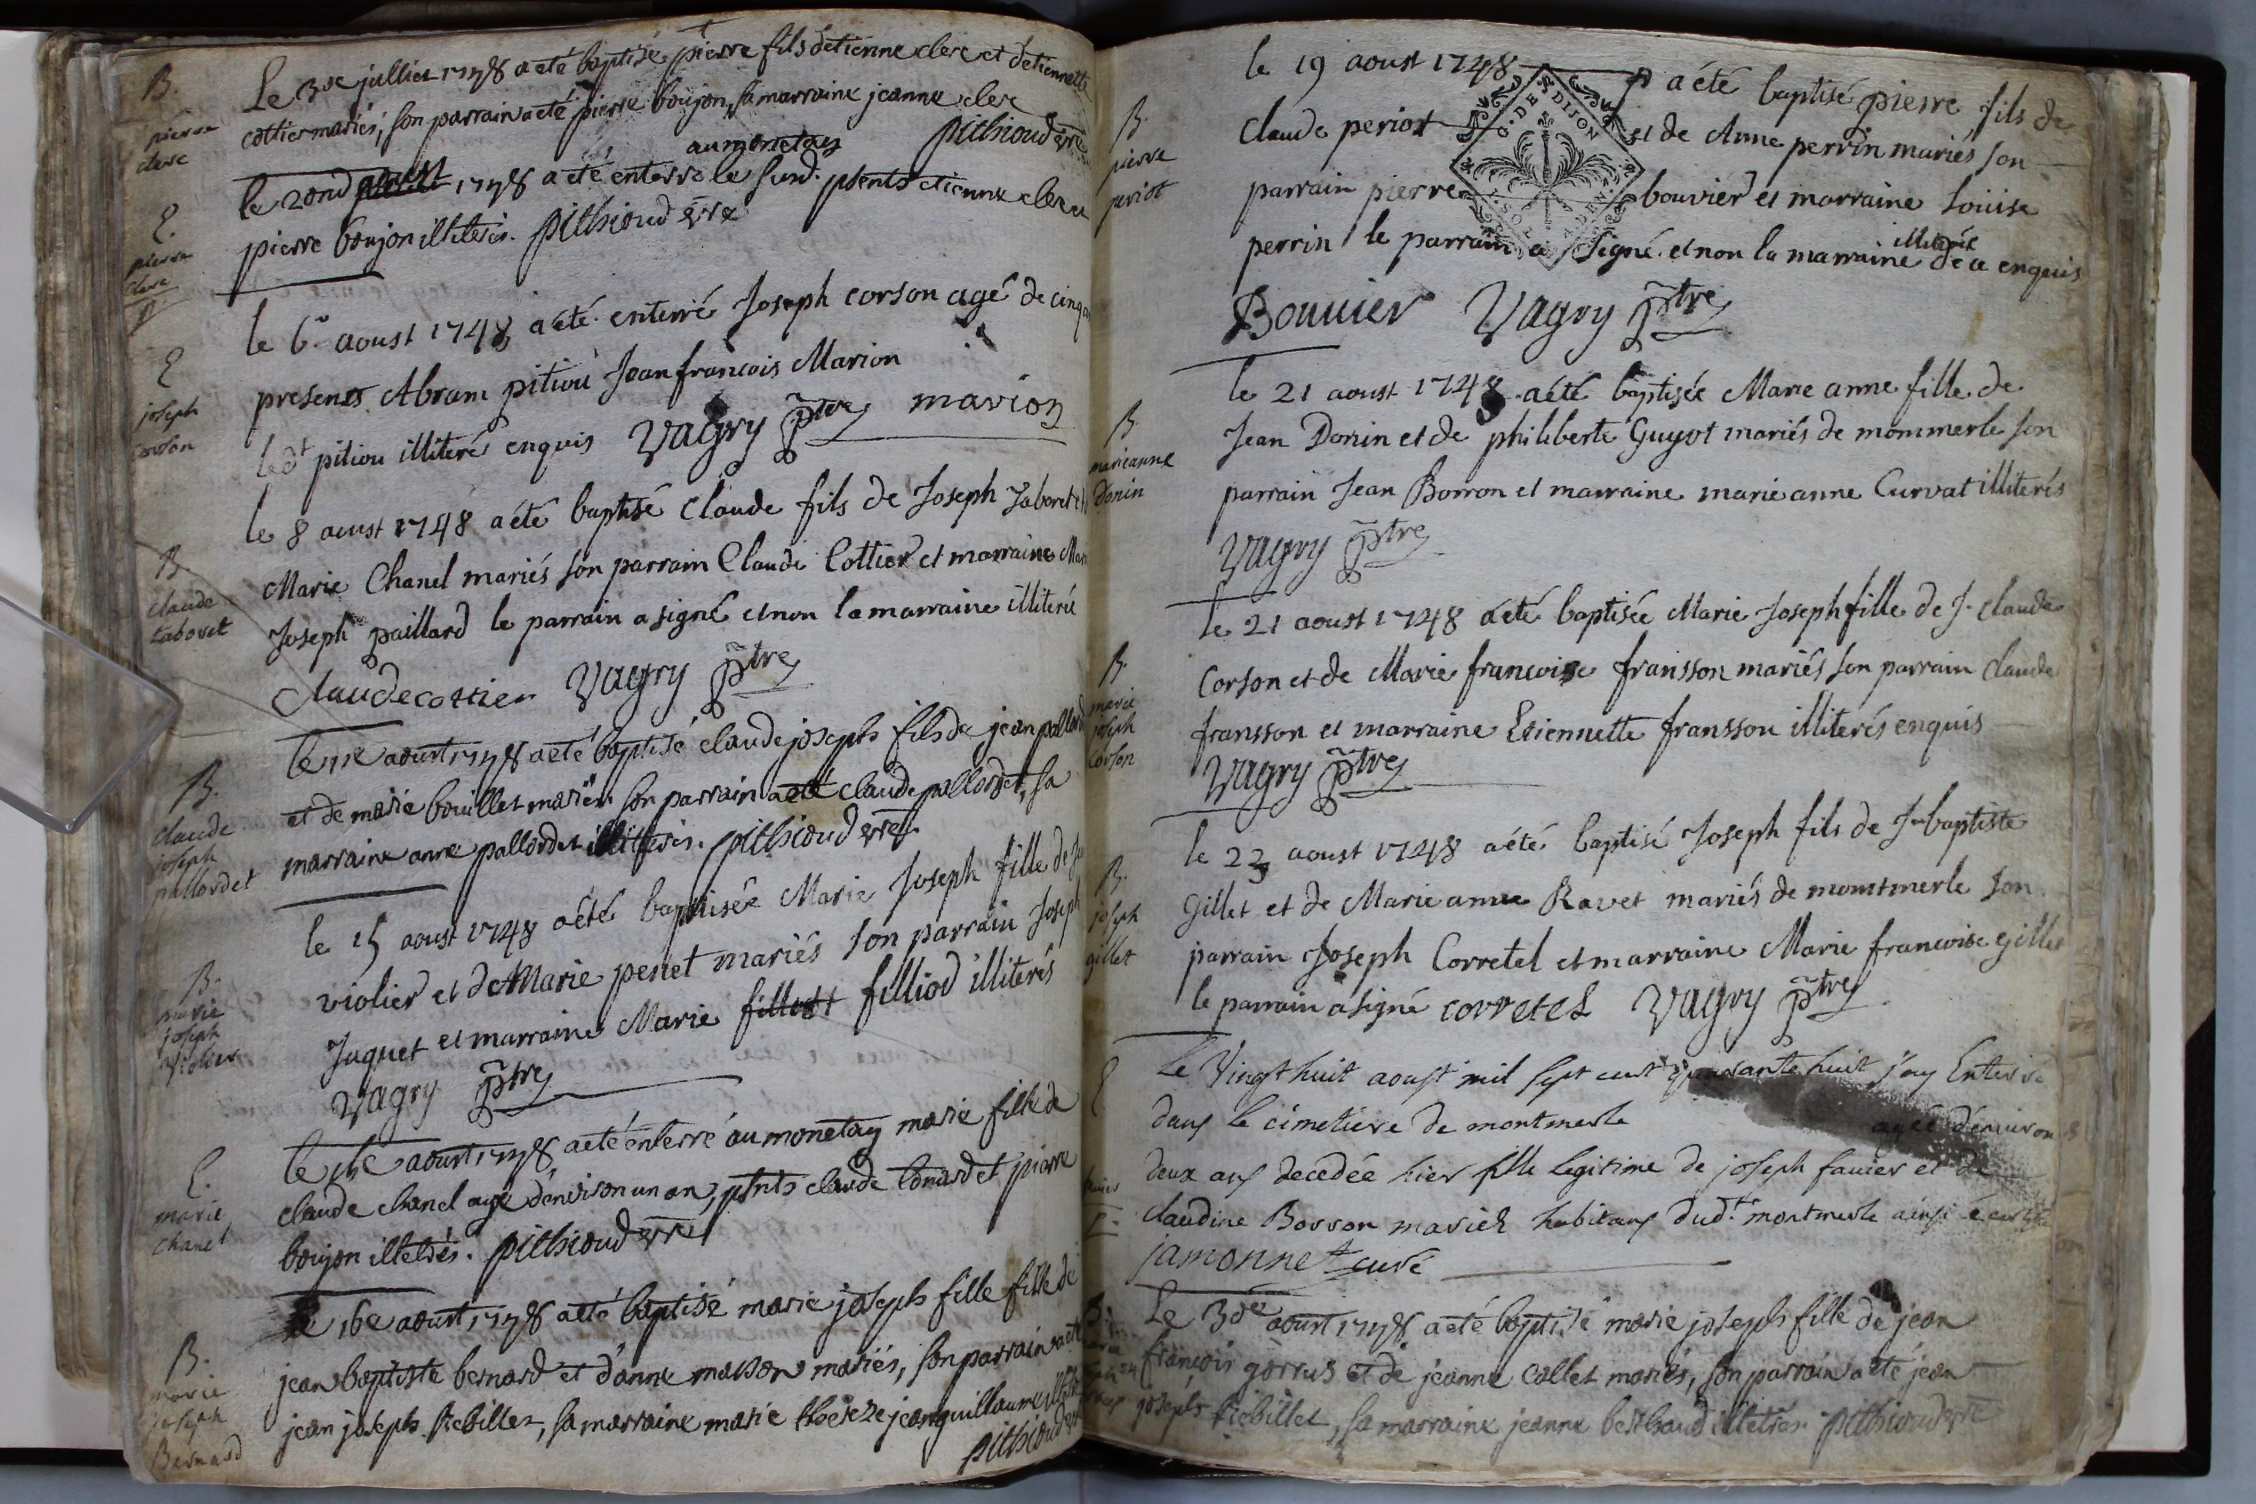 B.
pierre
clerc
Le 3de julliet 1748 a eté baptisé pierre fils detienne clerc et detiennette
cottier mariés, son parrain a eté pierre boujon, sa marraine jeanne clerc
pithioud
E.
pierre
clerc
au monetay
le 2ond aoust 1748 a eté enterré le susd. pnts etienne clerc et
pierre boujon illiterés. pithioud
E
joseph
corson
le 6e aoust 1748 a été enterré Joseph corson agé de
presents Abram pitiou Jean francois Marion
led.t pitiou illiteré enquis Vagry ptre marion
B
claude
Laboret
le 8 aoust 1748 a été baptisé Claude fils de Joseph Laboret et
Marie Chanel mariés son parrain Claude Cottier et marraine
Joseph paillard le parrain a signé et non la marraine illiterée
Claude cottier Vagry ptre
B.
claude
joseph
pallordet
le 11e aoust 1748 a eté baptisé claude joseph fils de jean
et de marie bouillet mariés son parrain a eté claude pallordet, sa
marraine anne pallordet illiterés. pithioud
B.
marie
joseph
violier
le 15 aoust 1748 a été baptisée Marie Joseph fille de
violier et de Marie penet mariés son parrain Joseph
Juquet et marraine Marie filliod illiterés
Vagry ptre
E.
marie
chanel
le 15e aoust 1748 a eté enterré au monetay marie fille de
claude chanel agé denviron un an, pnts claude et pierre
boujon illetrés. pithioud
B.
marie
joseph
Bernard
le 16e aoust 1748 a eté baptisé marie joseph fille fille de
jean baptiste bernard et d'anne maison mariés, son parrain a eté
jean joseph rebillet, sa marraine marie thereze jeanguillaume
pithioud
B.
pierre
periot
le 19 aoust 1748 a été baptisé pierre fils de
G. DE DIJON
Claude periot et de Anne perrin mariés son
parrain pierre bouvier et marraine Louise
illiterée
perrin le parrain a signé et non la marraine de ce enquis
Bouuier Vagry ptre
B
marieanne
Donin
le 21 aoust 1748 a été baptisée Marie anne fille de
Jean Donin et de philiberte Guyot mariés de mommerle son
parrain Jean Borron et marraine marie anne Curvat illiterés
Vagry ptre
B.
marie
joseph
corson
le 21 aoust 1748 a été baptisée Marie Joseph fille de J. Claude
Corson et de Marie francoise fransson mariés son parrain Claude
fransson et marraine Etiennette fransson illiterés enquis
Vagry ptre
B.
joseph
gillet
le 23 aoust 1748 a été baptisé Joseph fils de J baptiste
Gillet et de Marie anne Ravet mariés de montmerle son
parrain Joseph Corretel et marraine Marie francoise gillet
le parrain a signé corretel Vagry ptre
E
Le Vingt huit aoust mil sept cent quarante huit j'ay Enterré
dans le cimetiere de montmerle agée d'environ
deux ans decedée hier fille legitime de joseph fauier et de
claudine Borron mariés habitans dud.t montmerle ainsi
jamonnet curé
Le 3de aoust 1748 a eté baptisé marie joseph fille de jean
françois gorrus et de jeanne collet mariés, son parrain a eté jean
joseph rebillet, sa marraine jeanne berthaud illetrés. pithioud